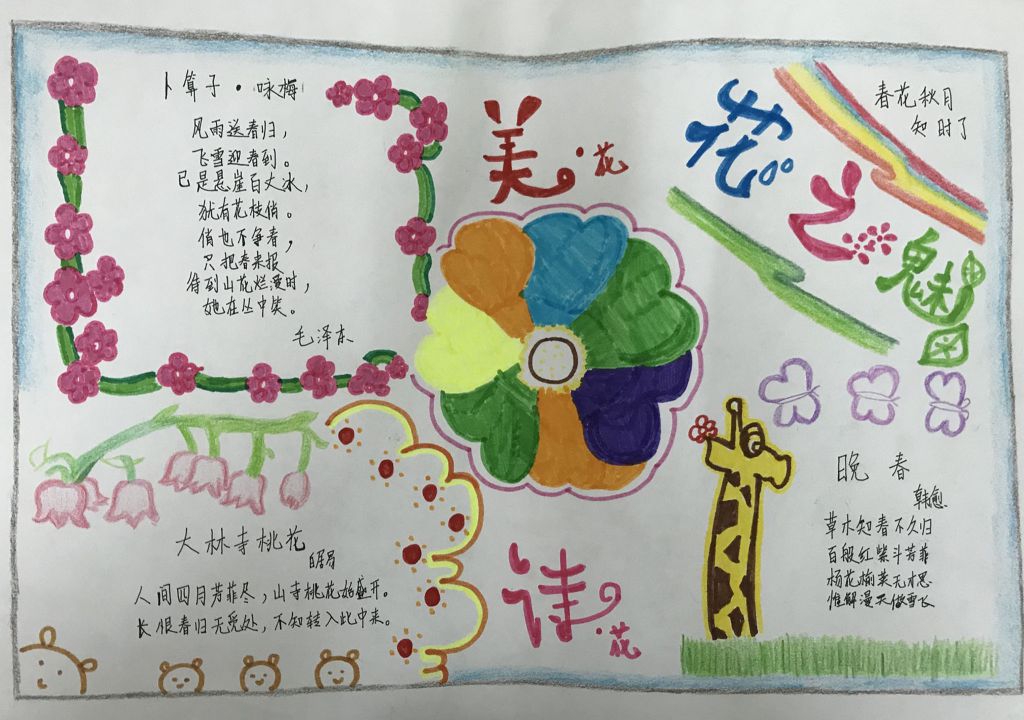 卜算子·咏梅
风雨送春归，
飞雪迎春到。
已是悬崖百丈冰，
犹有花枝俏。
俏也不争春，
只把春来报
待到山花烂漫时，
她在丛中笑。
毛泽东
美·花
花之魅
春花秋月
知时了
大林寺桃花
白居
人间四月芳菲冬，山寺桃花始盛开。
长恨春归无觅处，不知转入此中来。
诗·花
晚春
韩愈
草木知春不久归
百般红紫斗芳菲
杨花榆荚无才思
惟解漫天做雪飞